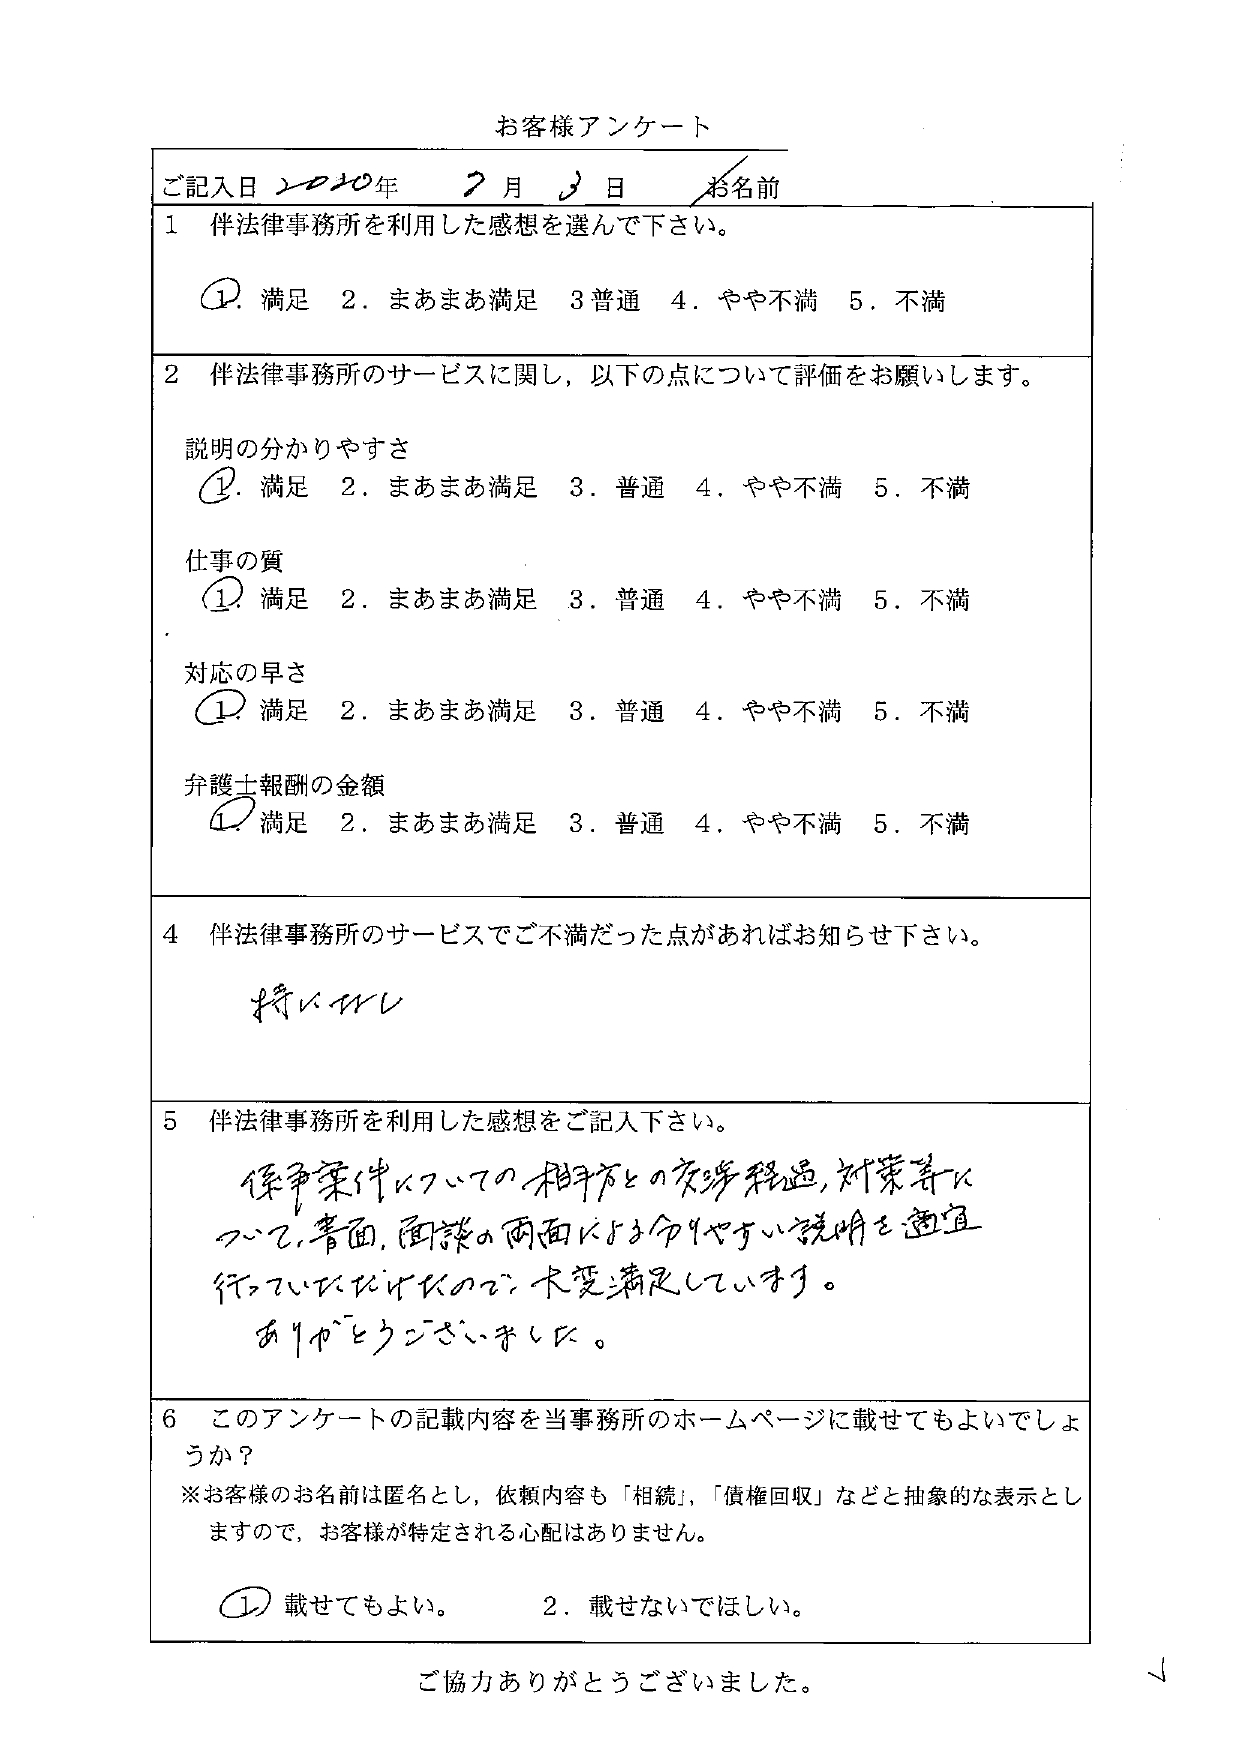 お客様アンケート
ご記入日 2020年 7月 3日 お名前
1 伴法律事務所を利用した感想を選んで下さい。
1. 満足 2. まあまあ満足 3普通 4. やや不満 5. 不満
2 伴法律事務所のサービスに関し，以下の点について評価をお願いします。
説明の分かりやすさ
1. 満足 2. まあまあ満足 3. 普通 4. やや不満 5. 不満
仕事の質
1. 満足 2. まあまあ満足 3. 普通 4. やや不満 5. 不満
対応の早さ
1. 満足 2. まあまあ満足 3. 普通 4. やや不満 5. 不満
弁護士報酬の金額
1. 満足 2. まあまあ満足 3. 普通 4. やや不満 5. 不満
4 伴法律事務所のサービスでご不満だった点があればお知らせ下さい。
特になし
5 伴法律事務所を利用した感想をご記入下さい。
係争案件についての相手方との交渉経過，対策等に
ついて，書面，面談の両面による分りやすい説明を適宜
行っていただけたので，大変満足しています。
ありがとうございました。
6 このアンケートの記載内容を当事務所のホームページに載せてもよいでしょ
うか？
※お客様のお名前は匿名とし，依頼内容も「相続」，「債権回収」などと抽象的な表示とし
ますので，お客様が特定される心配はありません。
1. 載せてもよい。 2. 載せないでほしい。
ご協力ありがとうございました。